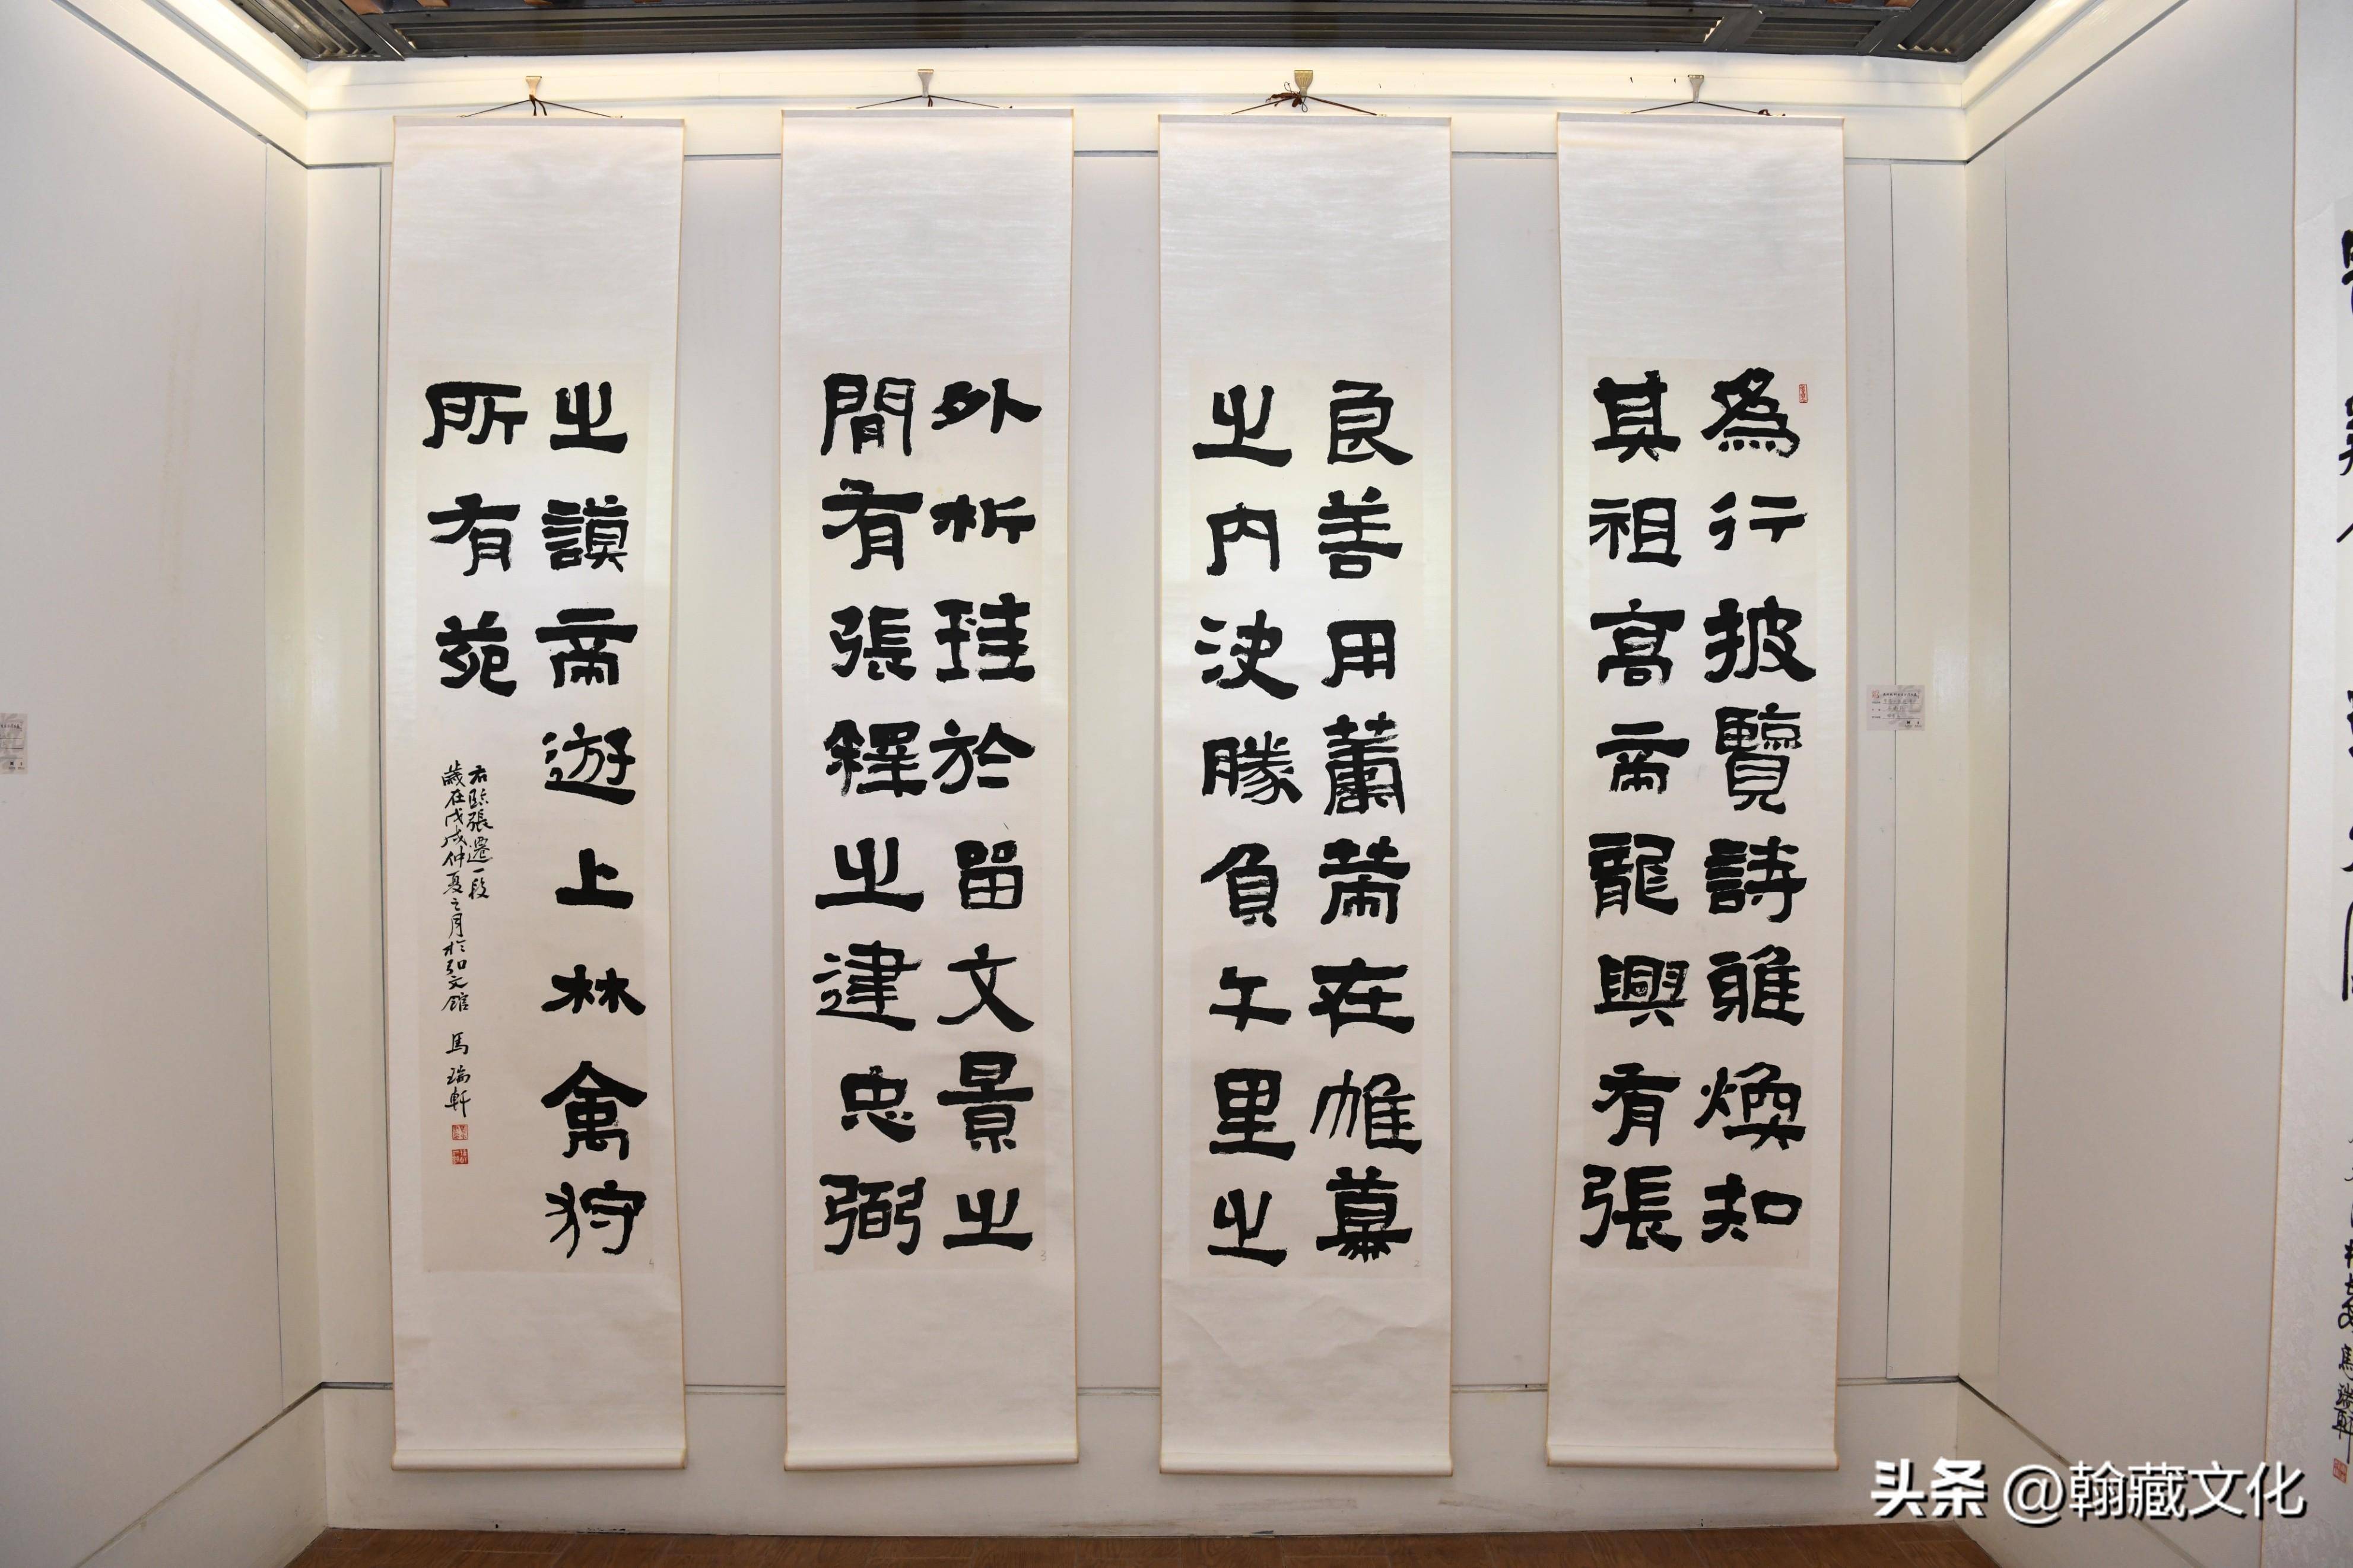 為行披覽詩雅煥知
其祖高帝龍興有張
良善用蕭䓑在帷幕
之內決勝負千里之
外析珪於留文景之
間有張釋之建忠弼
之謨帝遊上林禽狩
所有苑
右臨張遷一段
歲在戊戌仲夏之月於弘文館 馬瑞軒
1
2
3
4
头条 @翰藏文化